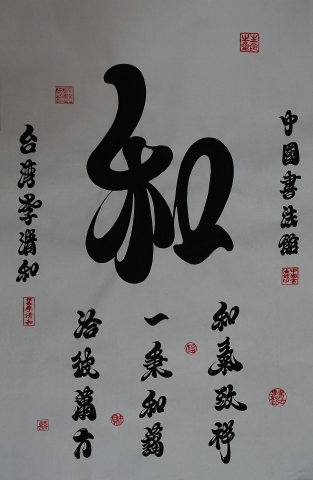 中國書法館
和
和氣致祥
一秉和藹
洽被萬方
台湾李清和